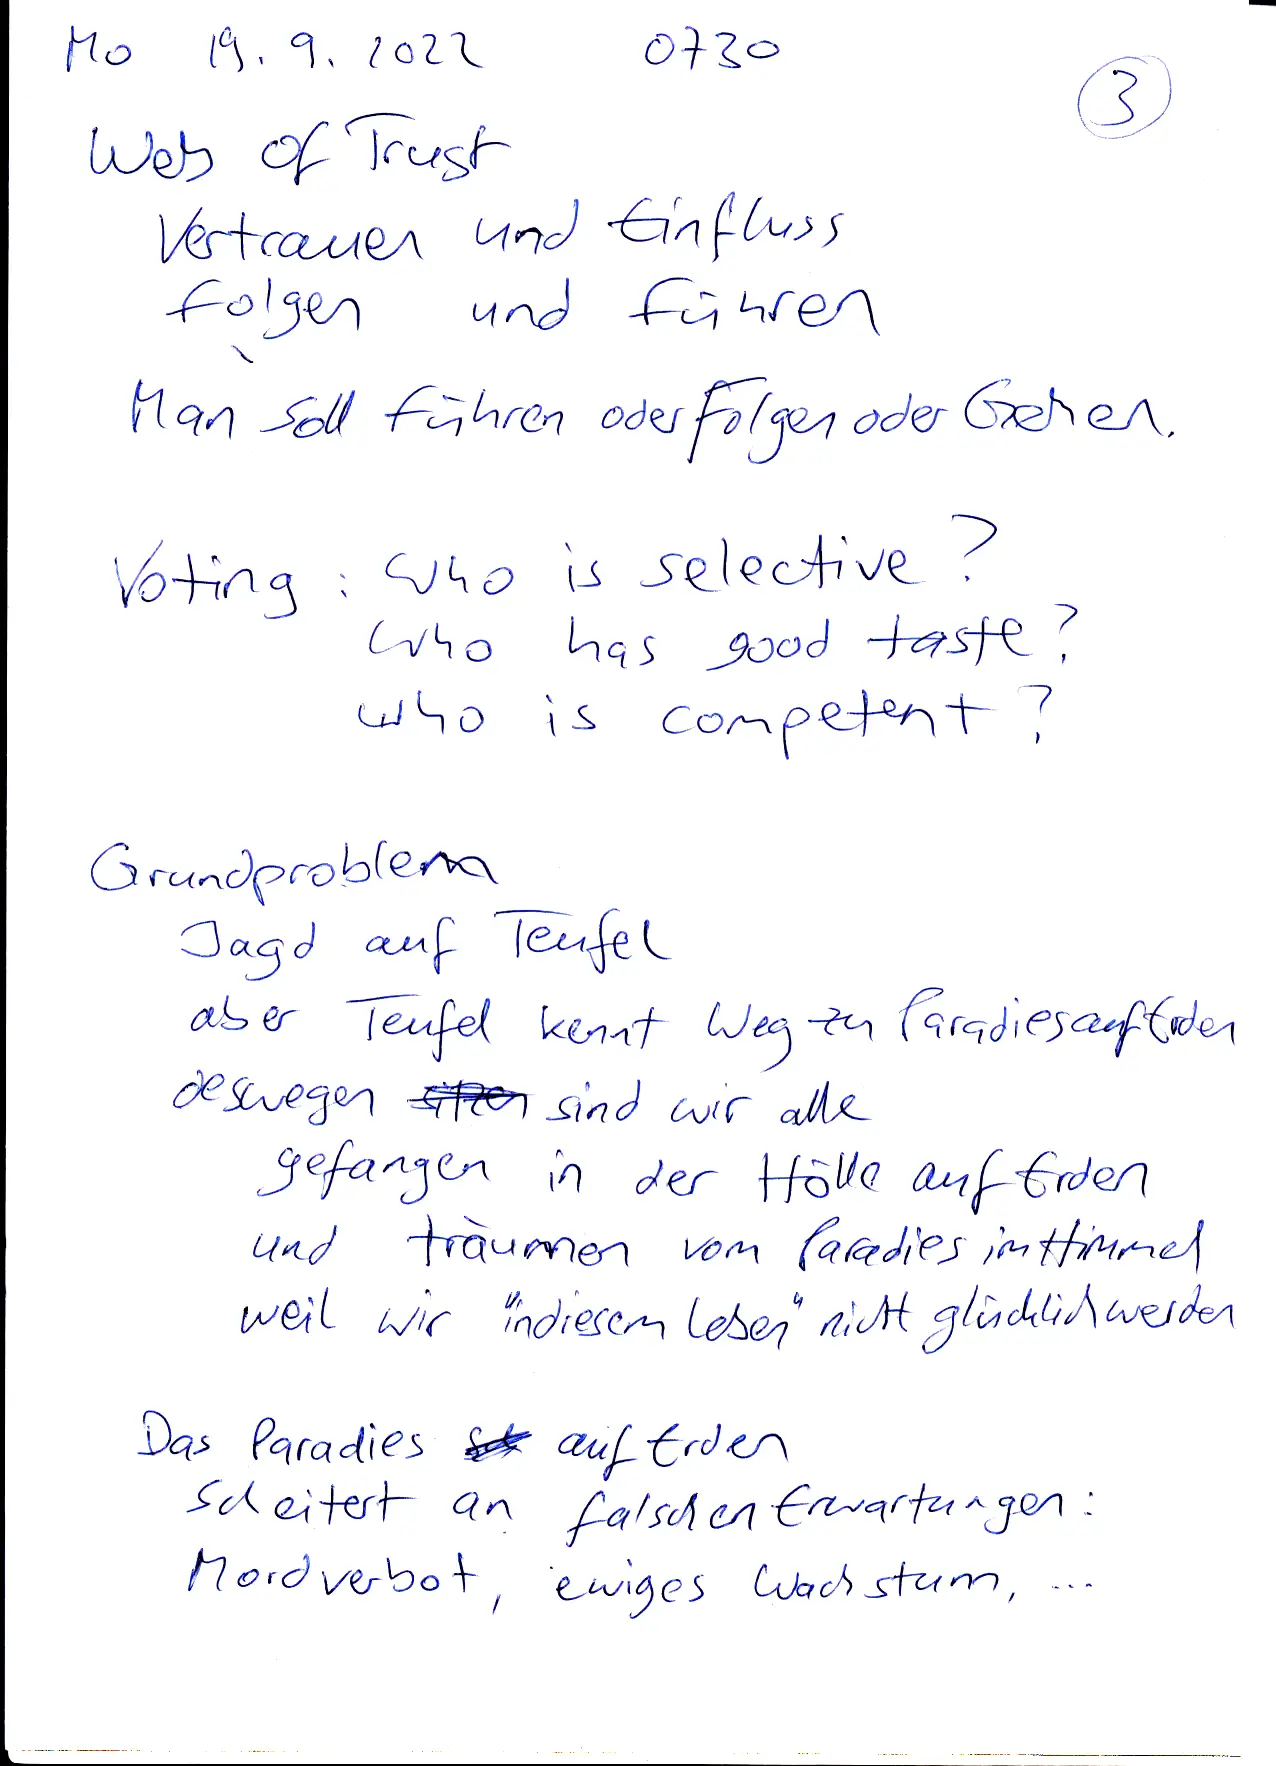 Mo 19.9.2022 0730
3
Web of Trust
Vertrauen und Einfluss
Folgen und Führen
Man soll Führen oder Folgen oder Gehen.
Voting: Who is selective?
Who has good taste?
Who is competent?
Grundproblem
Jagd auf Teufel
aber Teufel kennt Weg zu Paradies auf Erden
deswegen sind wir alle
gefangen in der Hölle auf Erden
und träumen vom Paradies im Himmel
weil wir "in diesem Leben" nicht glücklich werden
Das Paradies auf Erden
scheitert an falschen Erwartungen:
Mordverbot, ewiges Wachstum, ...